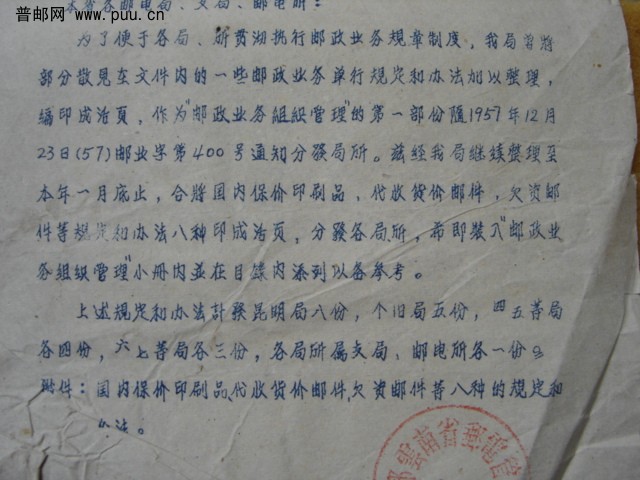 普邮网
www.puu.com.cn
本省各邮电局、支局、邮电所：
为了便于各局、所贯沏执行邮政业务规章制度，我局曾将
部分散見在文件内的一些邮政业务单行规定和办法加以整理，
编印成活頁，作为“邮政业务组织管理”的第一部份随1957年12月
23日(57)邮业字第400号通知分發局所。兹经我局继续整理至
本年一月底止，合將国内保价印刷品、代收货价邮件，欠资邮
件等规定和办法八种印成活页，分發各局所，希即裝入“邮政业
务组织管理”小册内並在目錄内添列以备参考。
上述規定和办法計發昆明局八份，个旧局五份，四五等局
各四份，六七等局各三份，各局所属支局、邮电所各一份。
附件：国内保价印刷品、代收货价邮件，欠资邮件等八种的規定和
办法。
部雲南省郵電管